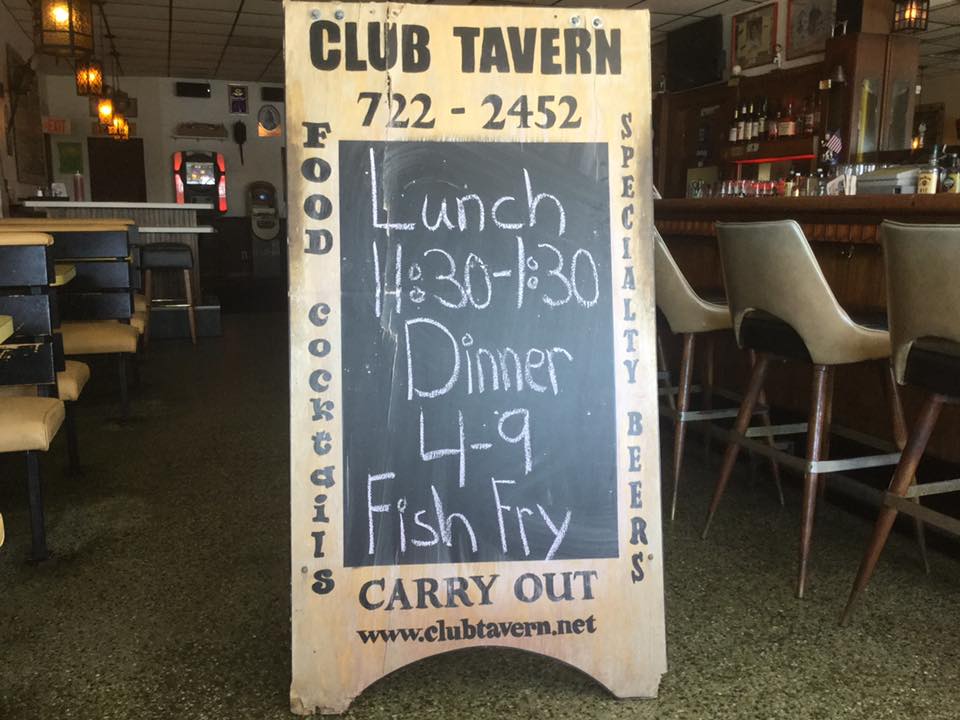 CLUB TAVERN
722 - 2452
FOOD cocktails
SPECIALTY BEERS
Lunch
11:30-1:30
Dinner
4-9
Fish Fry
CARRY OUT
www.clubtavern.net